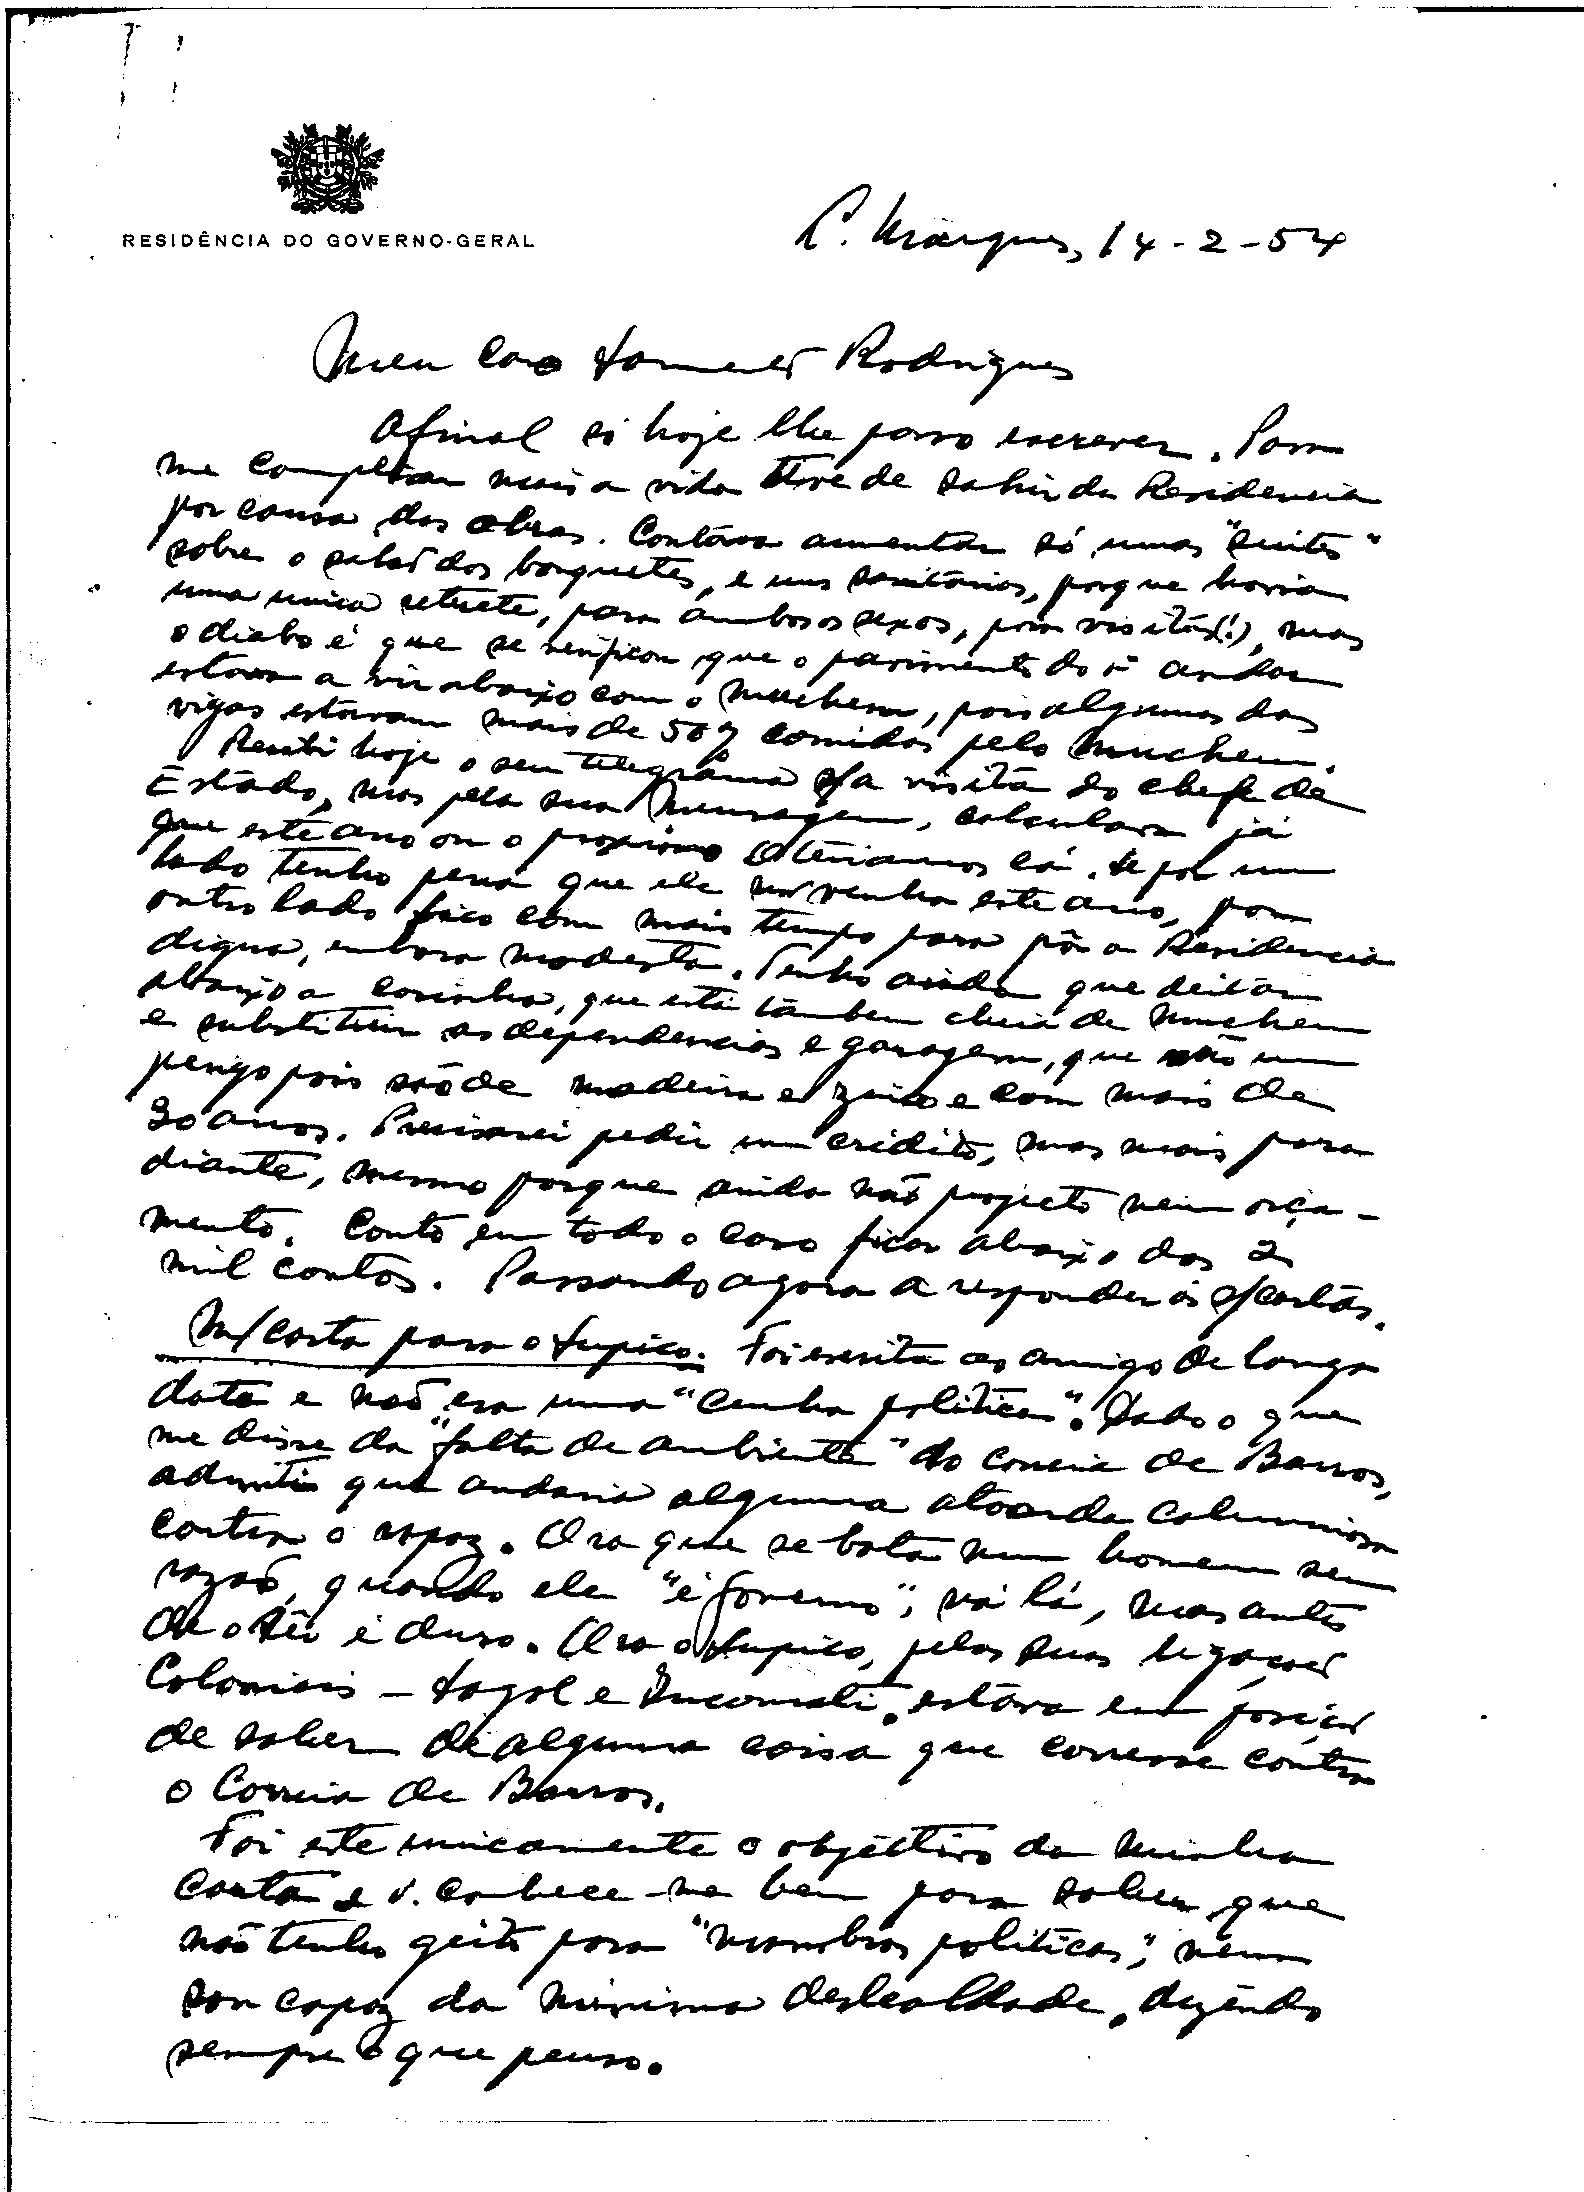 RESIDÊNCIA DO GOVERNO-GERAL
L. Marques, 14-2-54
Meu Caro Sarmento Rodrigues
Afinal só hoje lhe posso escrever. Para
me complicar mais a vida tive de sahir da Residencia
por causa das obras. Contava aumentar só umas "suites"
sobre o salão dos banquetes, e uns sanitários, porque havia
uma unica retrete, para ambos os sexos, para visitas(!), mas
o diabo é que se verificou que o pavimento do 1º andar
estava a vir abaixo com o muchem, pois algumas das
vigas estavam mais de 50% comidas pelo muchem.
Recebi hoje o seu telegrama s/a visita do chefe de
Estado, mas pela sua mensagem, calculava já
que este ano ou o proximo o teriamos cá. Se por um
lado tenho pena que ele não venha este ano, por
outro lado fico com mais tempo para pôr a Residencia
digna, embora modesta. Tenho ainda que deitar
abaixo a cosinha, que está tambem cheia de muchem
e substituir as dependencias e garagem, que são um
perigo pois são de madeira e zinco e com mais de
30 anos. Precisarei pedir um crédito, mas mais para
diante, mesmo porque ainda não projecto nem orça-
mento. Conto em todo o caso ficar abaixo dos 2
mil contos. Passando agora a responder ás s/cartas.
M/carta para o Supico. Foi escrita ao amigo de longa
data e não era uma "cunha politica". Dado o que
me disse da "falta de ambiente" do Correia de Barros,
admiti que andaria alguma atoarda caluniosa
contra o rapaz. Ora que se bata num homem sem
razão, quando ele "é governo", vá lá, mas antes
de o ser é duro. Ora o Supico, pelas suas ligações
Coloniais - Sagal e Incomati, estava em posição
de saber de alguma coisa que corresse contra
o Correia de Barros.
Foi este unicamente o objéctivo da minha
carta e V. conhece-me bem para saber que
não tenho geito para "manobras politicas", nem
sou capaz da minima deslealdade, dizendo
sempre o que penso.